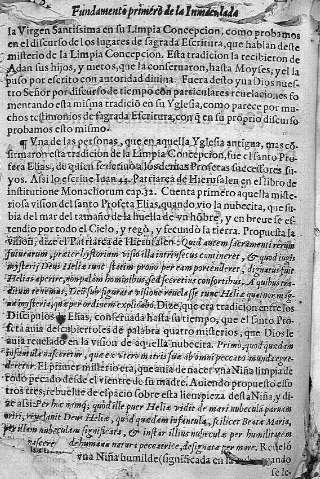 Fundamento primero de la Inmaculada
la Virgen Santissima en su Limpia Concepcion, como probamos
en el discurso de los lugares de sagrada Escritura, que hablan deste
misterio de la Limpia Concepcion. Esta tradicion la recibieron de
Adan sus hijos, y nietos, que la conseruaron, hasta Moyses, y el la
puso por escrito con autoridad diuina. Fuera desto vuo Dios nues-
tro Señor por discurso de tiempo con particulares reuelaciones fo-
mentando esta misma tradiciō en su Yglesia, como parece por mu-
chos testimonios de sagrada Escritura, con q̄ en su proprio discurso
probamos esto mismo.
¶ Vna de las personas, que en aquella Yglesia antigua, mas cō-
firmaron esta tradicion de la Limpia Concepcion, fue el santo Pro-
feta Elias, de quien los demas Profetas successores su-
yos. Assi lo escriue Iuan 44. Patriarca de Hierusalen en el libro de
institutione Monachorum cap. 32. Cuenta primero aquella miste-
riosa vision del santo Profeta Elias, quando vio la nubecita, que su-
bia del mar del tamaño de la huella de vn hōbre, y en breue se es-
tendio por todo el Cielo, y regò, y fecundò la tierra. Propuesta la
vision, dize el Patriarca de Hierusalen: Quid autem sacramenti rerum
futurarum, præter hystoriam visio illa intrinsecus contineret, & quod
mysterij Deus Heliæ statim prono per eam porrendere, dignatus fuit
Heliæ aperire, non palam hominibus, sed secretius confortibus. A quibus tra-
Deus figurate visione reuelasse tunc Heliæ quatuor mag-
na mysteria, quæ per ordinem explicabo. Dize, que era tradicion entre los
Discipulos de Elias, conseruada hasta su tiempo, que el santo Pro-
feta auia descubiertoles de palabra quatro misterios, que Dios le
auia reuelado en la vision de aquella nubecita. Primò, quod quædam
infantula nasceretur, quæ ex vtero matris suæ ab omni peccato munda
El primer misterio era, que auia de nacer vna Niña limpia de
todo pecado desde el vientre de su madre. Auiendo propuesto esso
tros tres, rebuelue de espacio sobre esta limpieza de la Niña, y di-
ze assi: Per hoc namq; quod ille puer Heliæ vidit de mari nubeculā paruam
oriri, reuelauit Deus Heliæ, quod quædam infantula, scilicet Beata Maria,
per nubeculam significata, & instar illius nubeculæ per humilitatem
nasceret de humana natura peccatrice, designata per mare. Reuelò
vna Niña humilde (significada en la quando
se le-